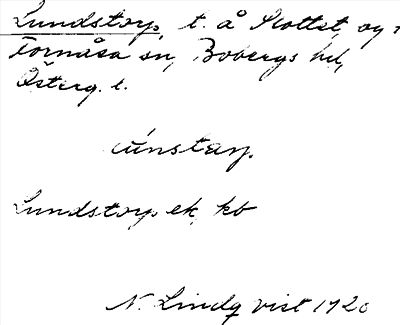 Lundstorp, t. å Slottet, og
Fornåsa sn, Bobergs hd,
Österg. l.
Lundstorp ek. kb
N. Lindqvist 1920